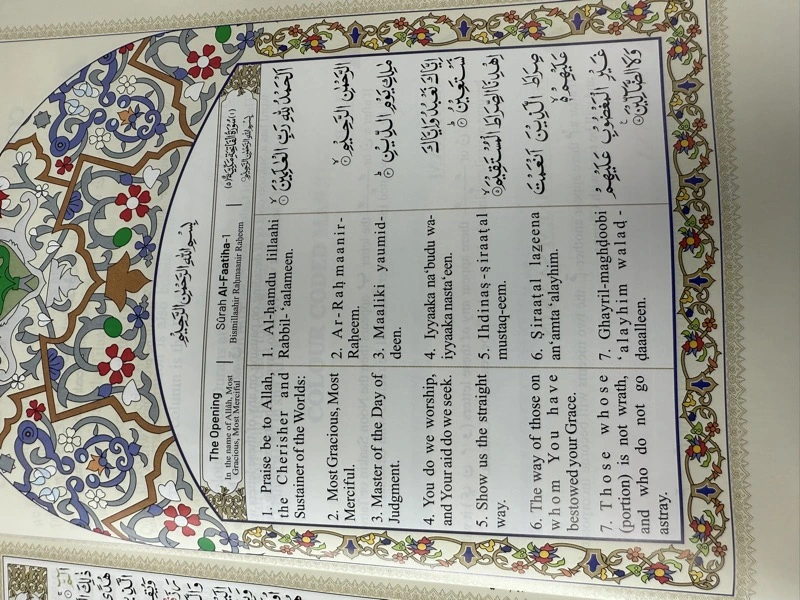 بِسْمِ اللهِ الرَّحْمٰنِ الرَّحِيْمِ
The Opening
In the name of Allâh, Most
Gracious, Most Merciful
Sûrah Al-Faatiha-1
Bismillaahir Raḥmaanir Raḥeem
بِسْمِ اللهِ الرَّحْمٰنِ الرَّحِيْمِ
1. Praise be to Allah,
the Cherisher and
Sustainer of the Worlds:
2. Most Gracious, Most
Merciful.
3. Master of the Day of
Judgment.
4. You do we worship,
and Your aid do we seek.
5. Show us the straight
way.
6. The way of those on
whom You have
bestowed your Grace.
7. Those whose
(portion) is not wrath,
and who do not go
astray.
1. Al-ḥamdu lillaahi
Rabbil-‘aalameen.
2. Ar-Raḥmaanir-
Raḥeem.
3. Maaliki yaumid-
deen.
4. Iyyaaka na‘budu wa-
iyyaaka nasta‘een.
5. Ihdinaṣ-ṣiraaṭal
mustaq-eem.
6. Ṣiraaṭal lazeena
an‘amta ‘alayhim.
7. Ghayril-maghḍoobi
‘alayhim walaḍ-
ḍaaalleen.
اَلْحَمْدُ لِلّٰهِ رَبِّ الْعٰلَمِيْنَ ۙ
الرَّحْمٰنِ الرَّحِيْمِ ۙ
مٰلِكِ يَوْمِ الدِّيْنِ ؕ
اِيَّاكَ نَعْبُدُ وَاِيَّاكَ
نَسْتَعِيْنُ ؕ
اِهْدِنَا الصِّرَاطَ الْمُسْتَقِيْمَ ۙ
صِرَاطَ الَّذِيْنَ اَنْعَمْتَ
عَلَيْهِمْ ۙ
غَيْرِ الْمَغْضُوْبِ عَلَيْهِمْ
وَلَا الضَّآلِّيْنَ